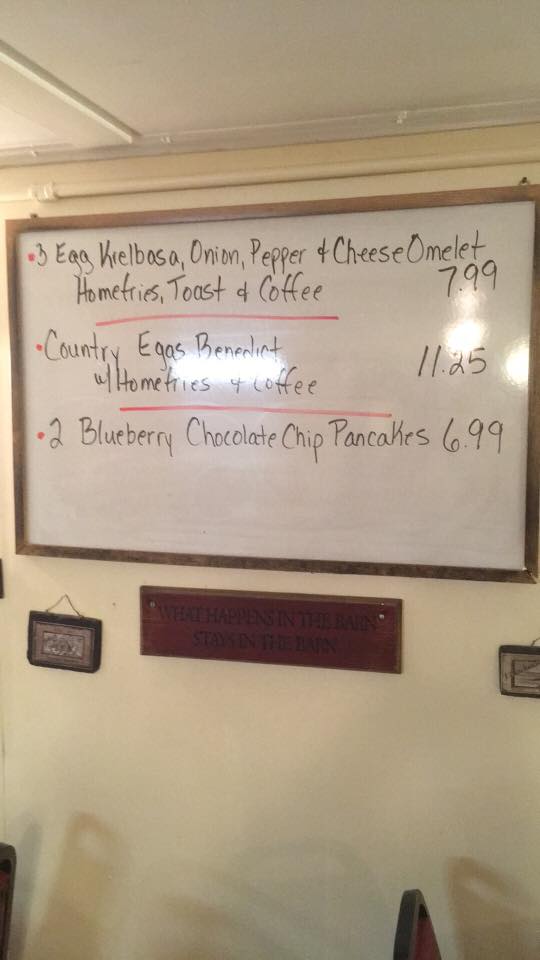 •3 Egg Kielbasa, Onion, Pepper & Cheese Omelet
Homefries, Toast & Coffee 7.99
•Country Eggs Benedict
w/ Homefries & Coffee 11.25
•2 Blueberry Chocolate Chip Pancakes 6.99
WHAT HAPPENS IN THE BARN
STAYS IN THE BARN